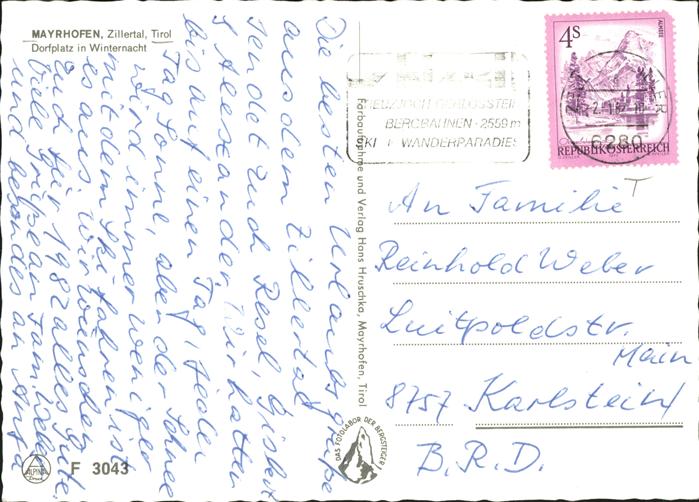 MAYRHOFEN, Zillertal, Tirol
Dorfplatz in Winternacht
Die besten Urlaubsgrüße
aus dem Zillertal
sendet Euch Resel, Gisbert
u Alexander. Wir hatten
bis auf einen Tag, jeden
Tag Sonne, aber der Schnee
wird immer weniger
mit dem Skifahren ist
es aus. Wir wünschen
Euch für 1982 alles Gute.
Viele Grüße an Fam. Weber
und besonders an
Farbaufnahme und Verlag Hans Hruschka, Mayrhofen, Tirol
BERGBAHNEN - 2559 m
SKI + WANDERPARADIES
4S
ALMSEE
REPUBLIK ÖSTERREICH
6280
An Familie
Reinhold Weber
Luitpoldstr.
8757 Karlstein/
Main
B.R.D.
DAS FOTOLABOR DER BERGSTEIGER
ALPINA
Druck
F 3043